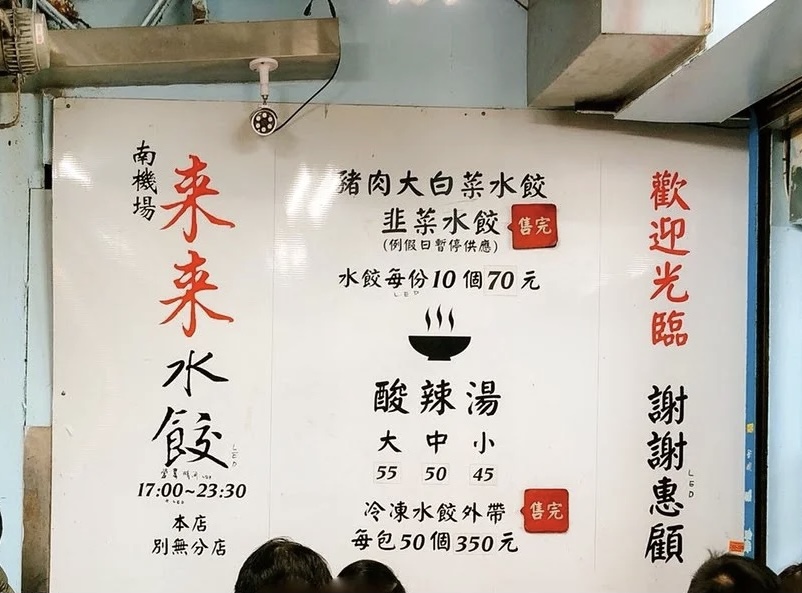 南機場
来来水餃
營業時間
17:00~23:30
本店
別無分店
豬肉大白菜水餃
韭菜水餃 售完
(例假日暫停供應)
水餃每份10個70元
LED
酸辣湯
大 中 小
55 50 45
冷凍水餃外帶 售完
每包50個350元
歡迎光臨
謝謝惠顧
LED
LED